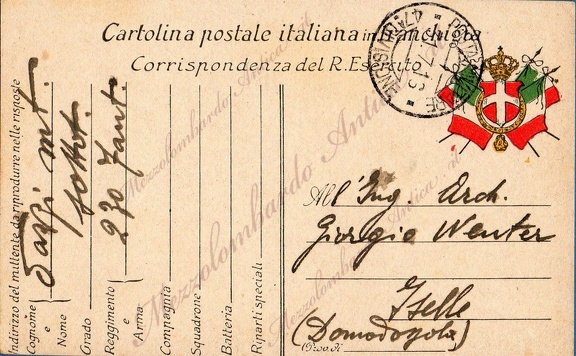 Cartolina postale italiana in franchigia
Corrispondenza del R. Esercito
POSTA MILITARE
47A DIVISIONE
7.16
All'Ing. Arch.
Giorgio Wenter
Iselle
(Domodossola)
(Prov. di
Indirizzo del mittente da riprodurre nelle risposte
Cognome e Nome
Grado
Reggimento e Arma
230 Fant.
Compagnia
Squadrone
Batteria
Riparti speciali
Mezzolombardo Antica